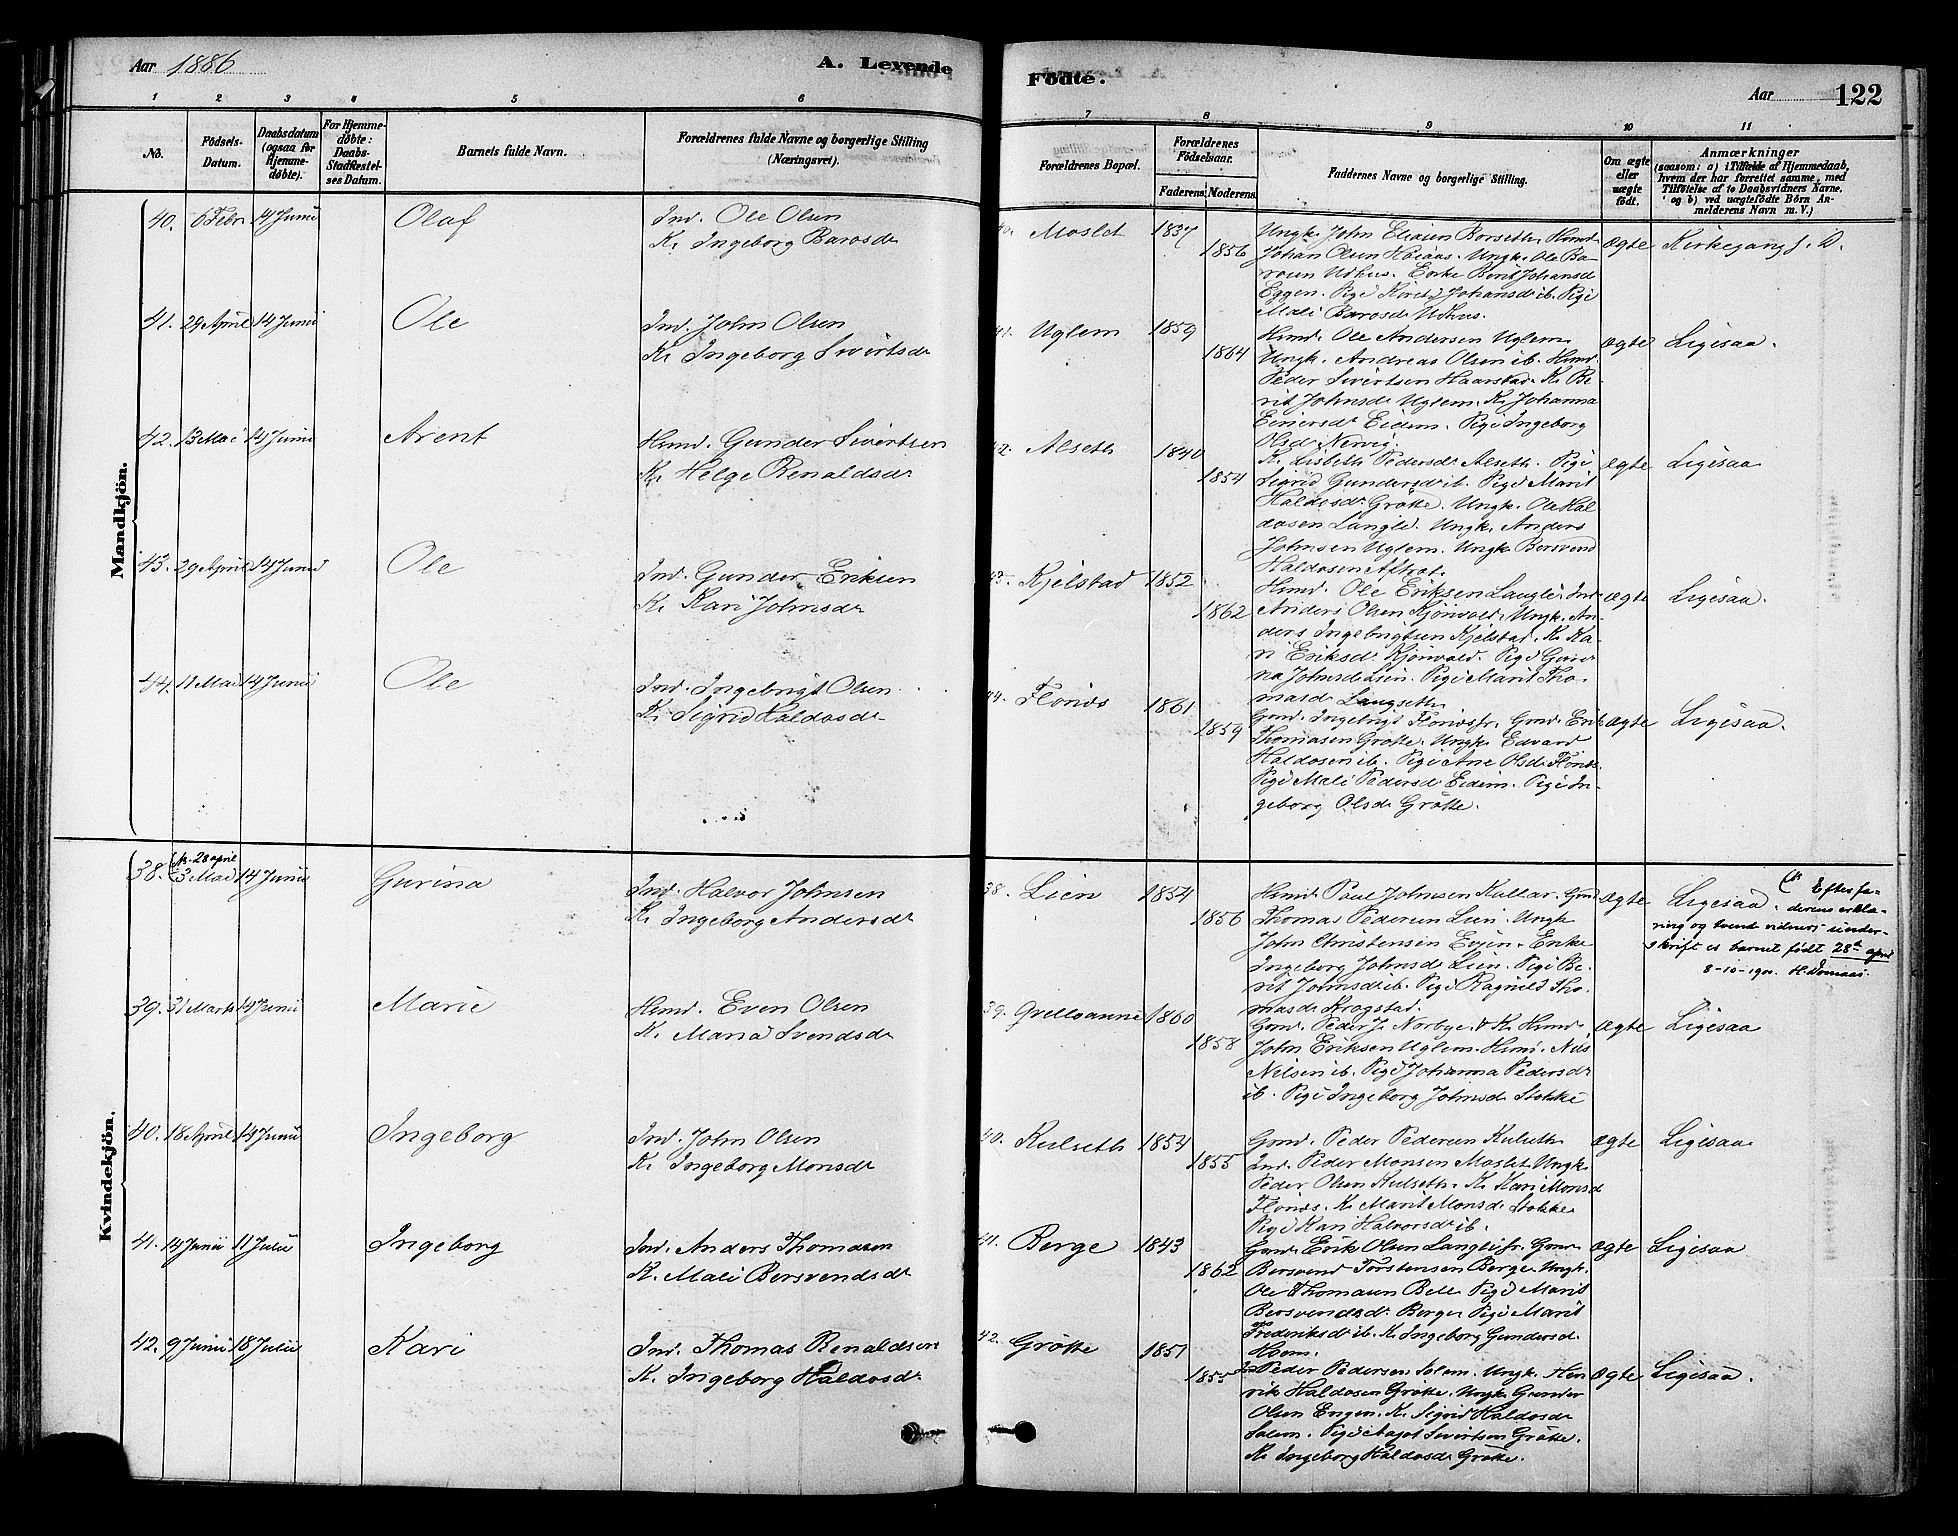 Aar 1886
A. Levende
Födte.
Aar
122
1 2 3 4 5 6 7 8 9 10 11
No.
Födsels-
Datum.
Daabsdatum
(ogsaa for
Hjemme-
döbte).
For Hjemme-
döbte:
Daabs-
Stadfæstel-
ses Datum.
Barnets fulde Navn.
Forældrenes fulde Navne og borgerlige Stilling
(Næringsvei).
Forældrenes Bopæl.
Forældrenes
Födselsaar.
Faderens.
Moderens.
Faddernes Navne og borgerlige Stilling.
Om ægte
eller
uægte
født.
Anmærkninger
(saasom: a) i Tilfælde af Hjemmedaab,
hvem der har forrettet samme, med
Tilföielse af to Daabsvidners Navne.
og b) ved uægtefödte Börn An-
melderens Navn m. V.)
Mandkjön.
40. 6 Febr 14 Junii Olaf
Ind. Ole Olsen
K. Ingeborg Barosdr
40. Moslet 1837
1856
Ungk. John Eliasen Borseth. Hmd.
Johan Olsen Høiaas. Ungk. Ole Ba-
rosen Udhus. Enke Berit Johansdr
Eggen. Pige Kirsti Johansdr ib. Pige
Mali Barosdr Udhus.
ægte
Kirkegang s. D.
41. 29 April 14 Junii Ole
Ind. John Olsen
K. Ingeborg Sivertsdr
41. Uglem 1859
1864
Hmd. Ole Andersen Uglem
Ungk. Andreas Olsen ib. Hmd.
Peder Sivertsen Haarstad. K. Be-
rit Johnsdr Uglem. K. Johanna
Einersdr Eidem. Pige Ingeborg
Olsdr Nervig.
ægte
Ligesaa.
42. 13 Mai 14 Junii Arent
Hmd. Gunder Sivertsen
K. Helge Renaldsdr
42. Alseth 1840
1854
K. Lisbeth Pedersdr Alseth. Pige
Sigrid Gundersdr ib. Pige Marit
Haldosdr Grøtte. Ungk. Ole Hal-
dosen Langli. Ungk. Anders
Johnsen Uglem. Ungk. Bersvend
Haldosen Aftret.
ægte
Ligesaa
43. 29 April 14 Junii Ole
Ind. Gunder Eriksen
K. Kari Johnsdr
43. Kjelstad 1852
1862
Hmd. Ole Eriksen Langli. Ind.
Anders Olsen Kjønvald. Ungk. An-
ders Ingebrigtsen Kjelstad. K. Ka-
ri Eriksdr Kjønvald. Pige Guri-
na Johnsdr Lien. Pige Marit Tho-
masdr Langseth
ægte
Ligesaa.
44. 11 Mai 14 Junii Ole
Ind. Ingebrigt Olsen
K. Sigrid Haldosdr
44. Flønæs 1861
1859
Gmd. Ingebrigt Flønæs fr. Gmd. Erik
Thomasen Grøtte. Ungk. Edvard
Haldosen ib. Pige Ane Olsdr Flønæs
Pige Mali Pedersdr Eidem. Pige In-
geborg Olsdr Grøtte.
ægte
Ligesaa.
Kvindekjön.
38. 28 april
3 Mai 14 Junii Gurina
Ind. Halvor Johnsen
K. Ingeborg Andersdr
38. Lien 1854
1856
Hmd. Paul Johnsen Kallar. Gmd
Thomas Pedersen Lien. Ungk
John Christensen Evjen. Enke
Ingeborg Johnsdr Lien. Pige Be-
rit Johnsdr ib. Pige Ragnild Tho-
masdr Kragstad.
ægte
Ligesaa. Efter fa-
derens erklæ-
ring og tvend vidners under-
skrift er barnet født 28de april
8-10-1901.
39. 31 Marts 14 Junii Marie
Hmd. Even Olsen
K. Maria Svendsdr
39. Grelloanne 1860
1858
Gmd. Peder J. Norbye. & K. Hmd.
John Eriksen Uglem. Hmd. Nils
Nilsen ib. Pige Johanna Pedersdr
ib. Pige Ingeborg Johnsdr Stokke
ægte
Ligesaa
40. 18 April 14 Junii Ingeborg
Ind. John Olsen
K. Ingeborg Monsdr
40. Kulseth 1854
1855
Gmd. Peder Pedersen Kulseth
Ind. Peder Monsen Moslet. Ungk.
Peder Olsen Kulseth. K. Kari Monsd
Flønæs. K. Marit Monsdr Stokke
Pige Kari Halvorsdr ib.
ægte
Ligesaa
41. 14 Junii 11 Julii Ingeborg
Ind. Anders Thomasen
K. Mali Bersvendsdr
41. Berge 1843
1862
Gmd. Erik Olsen Langli fr. Gmd.
Bersvend Torstensen Berge. Ungk.
Ole Thomasen Bell. Pige Marit
Bersvendsdr Berge. Pige Marit
Frederiksdr ib. K. Ingeborg Gundersd.
Hoem.
ægte
Ligesaa
42. 9 Junii 18 Julii Kari
Ind. Thomas Renaldsen
K. Ingeborg Haldosdr
42. Grøtte 1851
1855
Ind. Peder Pedersen Solem. Ungk. Hen-
rik Haldosen Grøtte. Ungk. Gunder
Olsen Engen. K. Sigrid Haldosdr
Solem. Pige Aagot Sivertsen Grøtte.
K. Ingeborg Haldosdr Grøtte.
ægte
Ligesaa.